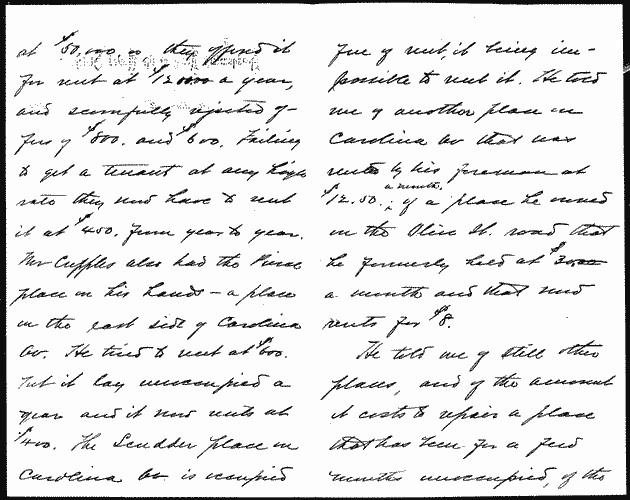 at $50,000 or they offered it
for rent at $12000 a year,
and scornfully rejected of-
fers of $800. and $600. Failing
to get a tenant at any high
rate they now have to rent
it at $450. from year to year.
Mr Cupples also had the
place on his hands — a place
on the east side of Carolina
Av. He tried to rent at $600.
but it lay unoccupied a
year and it now rents at
$400. The Scudder place on
Carolina Av is occupied
free of rent, it being im-
possible to rent it. He told
me of another place on
Carolina Av that was
rented by his foreman at
$12.50. a month, of a place he owned
on the Olive St. road that
he formerly held at
a month and that now
rents for $8.
He told me of still other
places, and of the amount
it costs to repair a place
that has been for a few
months unoccupied, of the